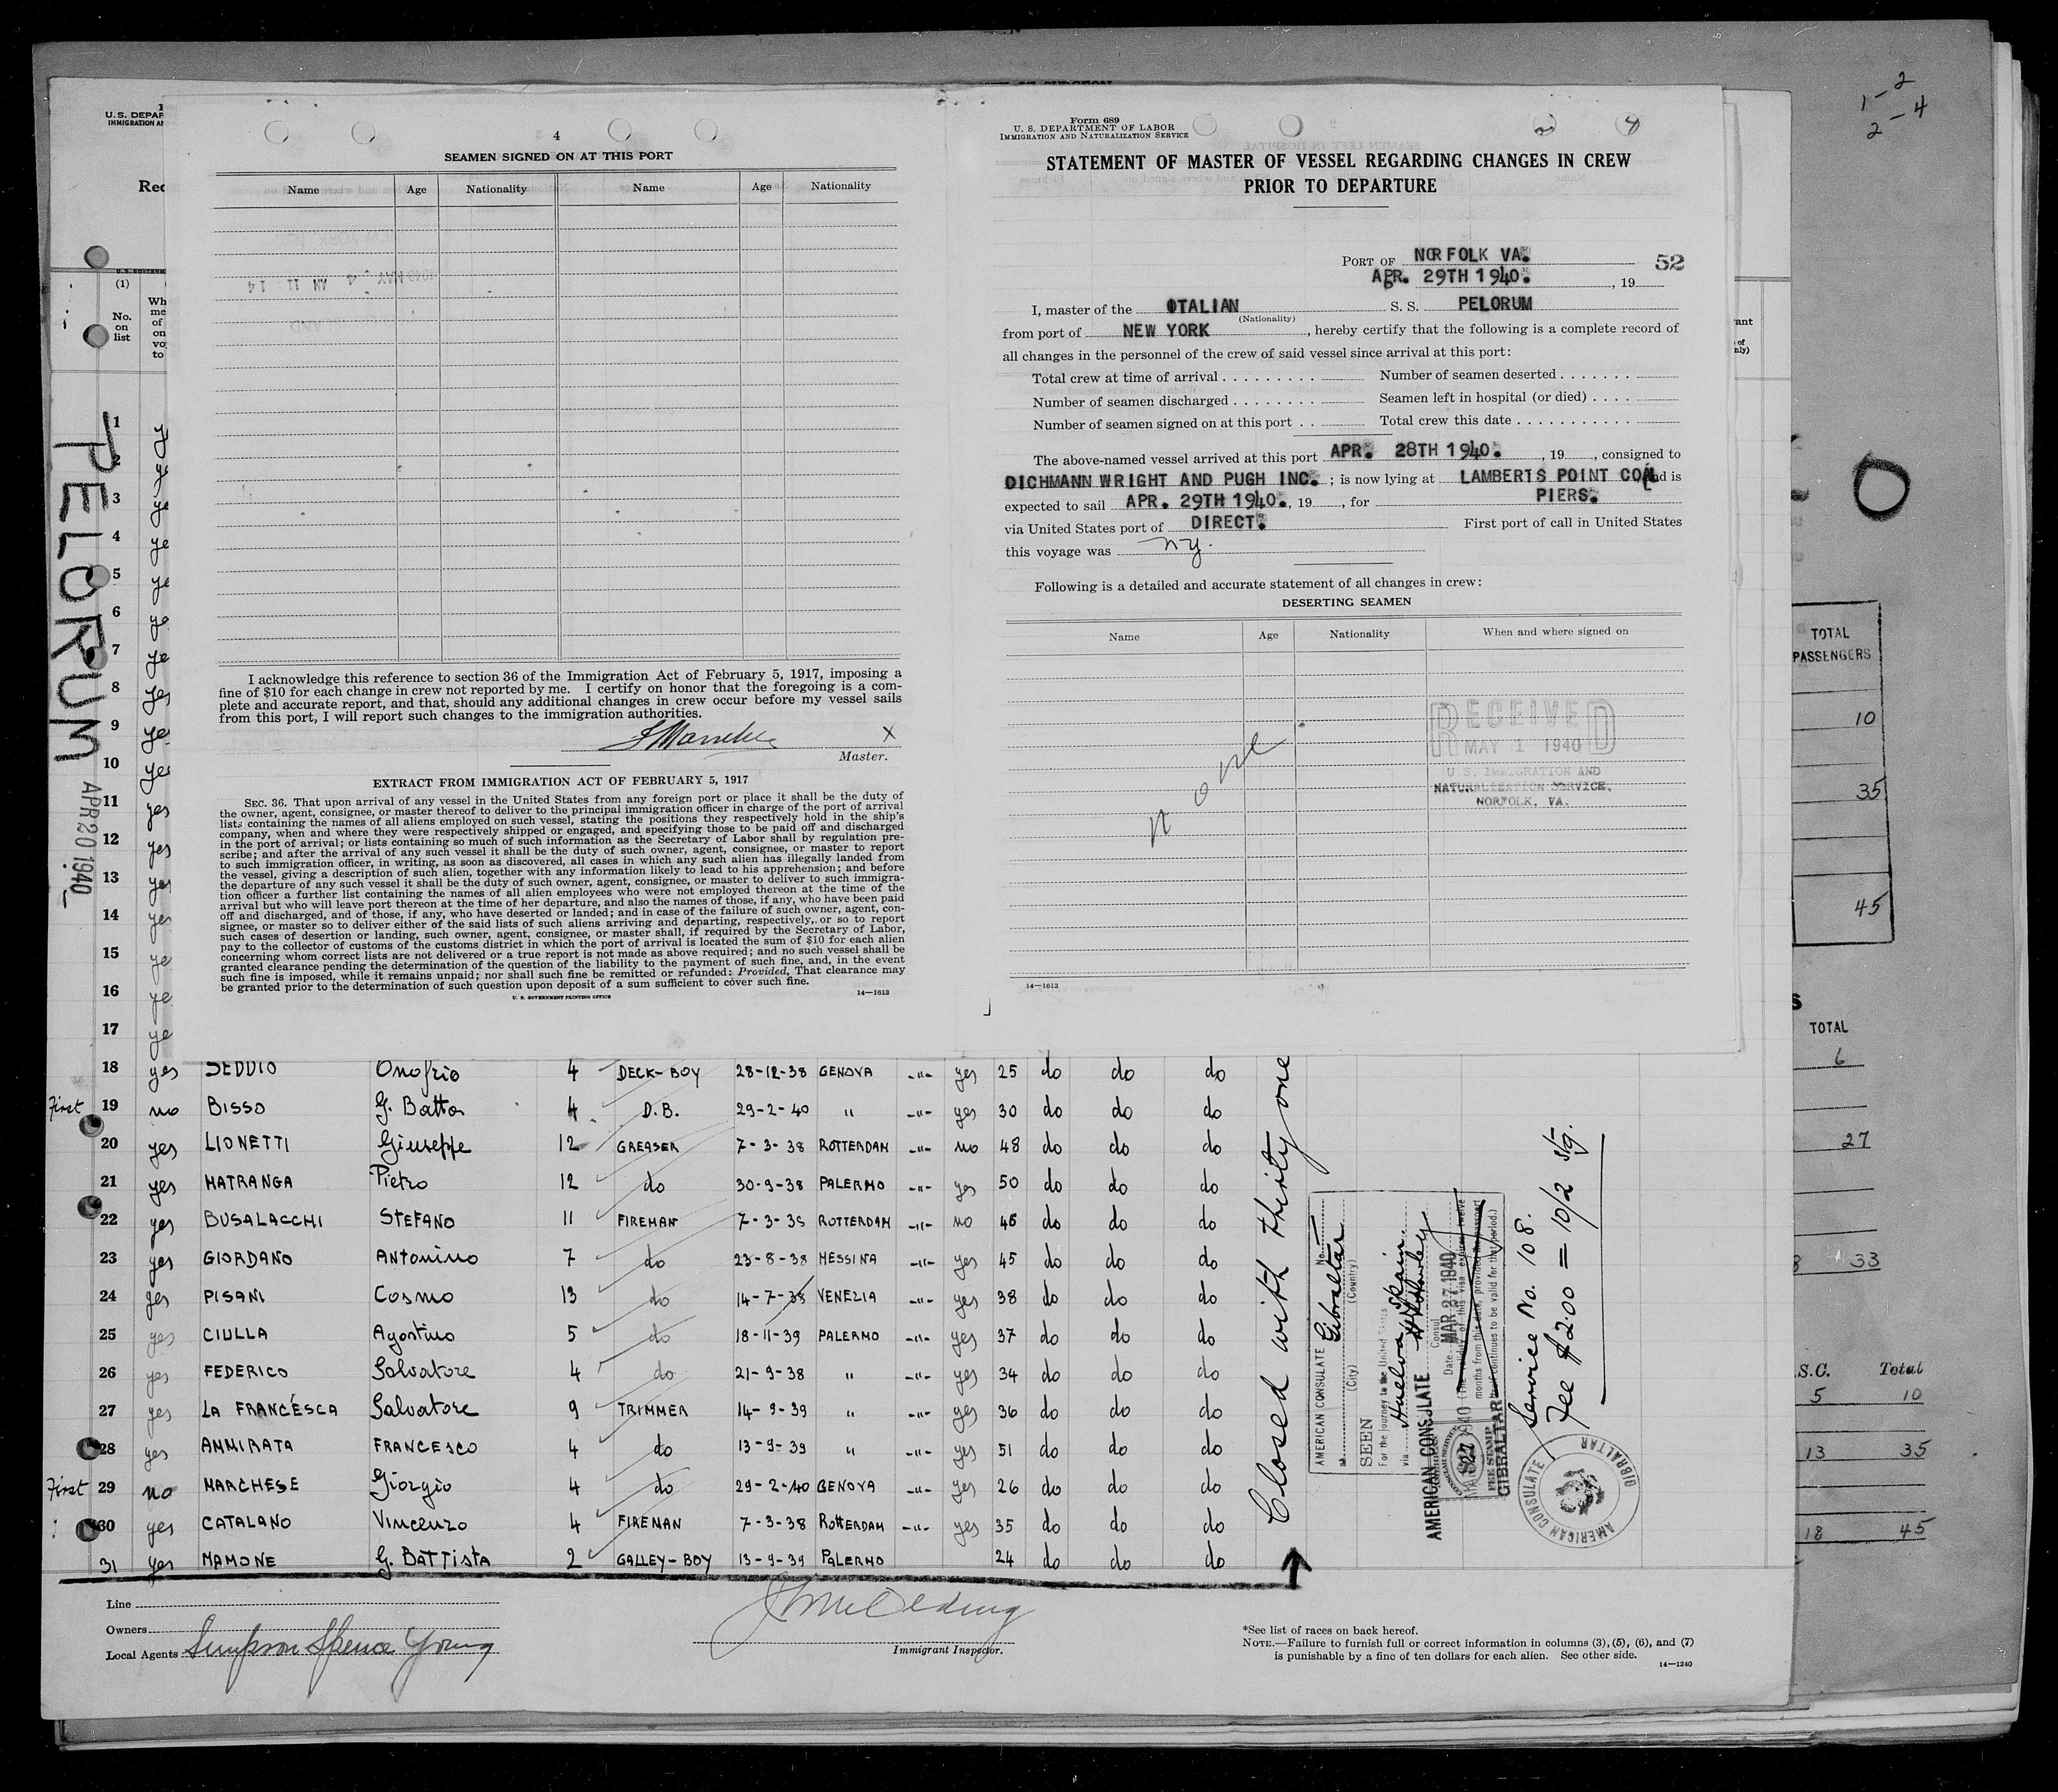 U.S. DEPAR
IMMIGRATION AN
Rec
(1)
No. on list
Wh
me
of
on
vo
to
PELORUM
APR 20 1940
4
SEAMEN SIGNED ON AT THIS PORT
Name Age Nationality Name Age Nationality
I acknowledge this reference to section 36 of the Immigration Act of February 5, 1917, imposing a
fine of $10 for each change in crew not reported by me. I certify on honor that the foregoing is a com-
plete and accurate report, and that, should any additional changes in crew occur before my vessel sails
from this port, I will report such changes to the immigration authorities.
X
Master.
EXTRACT FROM IMMIGRATION ACT OF FEBRUARY 5, 1917
SEC. 36. That upon arrival of any vessel in the United States from any foreign port or place it shall be the duty of
the owner, agent, consignee, or master thereof to deliver to the principal immigration officer in charge of the port of arrival
lists containing the names of all aliens employed on such vessel, stating the positions they respectively hold in the ship's
company, when and where they were respectively shipped or engaged, and specifying those to be paid off and discharged
in the port of arrival; or lists containing so much of such information as the Secretary of Labor shall by regulation pre-
scribe; and after the arrival of any such vessel it shall be the duty of such owner, agent, consignee, or master to report
to such immigration officer, in writing, as soon as discovered, all cases in which any such alien has illegally landed from
the vessel, giving a description of such alien, together with any information likely to lead to his apprehension; and before
the departure of any such vessel it shall be the duty of such owner, agent, consignee, or master to deliver to such immigra-
tion officer a further list containing the names of all alien employees who were not employed thereon at the time of the
arrival but who will leave port thereon at the time of her departure, and also the names of those, if any, who have been paid
off and discharged, and of those, if any, who have deserted or landed; and in case of the failure of such owner, agent, con-
signee, or master so to deliver either of the said lists of such aliens arriving and departing, respectively, or so to report
such cases of desertion or landing, such owner, agent, consignee, or master shall, if required by the Secretary of Labor,
pay to the collector of customs of the customs district in which the port of arrival is located the sum of $10 for each alien
concerning whom correct lists are not delivered or a true report is not made as above required; and no such vessel shall be
granted clearance pending the determination of the question of the liability to the payment of such fine, and, in the event
such fine is imposed, while it remains unpaid; nor shall such fine be remitted or refunded: Provided, That clearance may
be granted prior to the determination of such question upon deposit of a sum sufficient to cover such fine.
U. S. GOVERNMENT PRINTING OFFICE 14—1613
Form 689
U. S. DEPARTMENT OF LABOR
IMMIGRATION AND NATURALIZATION SERVICE
STATEMENT OF MASTER OF VESSEL REGARDING CHANGES IN CREW
PRIOR TO DEPARTURE
PORT OF NORFOLK VA. 52
APR. 29TH 1940. , 19
I, master of the OTALIAN S. S. PELORUM
(Nationality)
from port of NEW YORK , hereby certify that the following is a complete record of
all changes in the personnel of the crew of said vessel since arrival at this port:
Total crew at time of arrival Number of seamen deserted
Number of seamen discharged Seamen left in hospital (or died)
Number of seamen signed on at this port Total crew this date
The above-named vessel arrived at this port APR. 28TH 1940. , 19 , consigned to
DICHMANN WRIGHT AND PUGH INC. ; is now lying at LAMBERTS POINT COAL and is
PIERS.
expected to sail APR. 29TH 1940. , 19 , for
via United States port of DIRECT. First port of call in United States
this voyage was NY.
Following is a detailed and accurate statement of all changes in crew:
DESERTING SEAMEN
Name Age Nationality When and where signed on
None
RECEIVED
MAY 1 1940
U.S. IMMIGRATION AND
NATURALIZATION SERVICE,
NORFOLK, VA.
14—1613
1
2
3
4
5
6
7
8
9
10
11 yes
12 yes
13 yes
14 yes
15 ye
16 ye
17 ye
18 yes SEDDIO Onofrio 4 DECK-BOY 28-12-38 GENOVA -"- yes 25 do do do
First 19 no BISSO G. Batta 4 D.B. 29-2-40 " -"- yes 30 do do do
20 yes LIONETTI Giuseppe 12 GREASER 7-3-38 ROTTERDAM -"- no 48 do do do
21 yes MATRANGA Pietro 12 do 30-9-38 PALERMO -"- yes 50 do do do
22 yes BUSALACCHI STEFANO 11 FIREMAN 7-3-38 ROTTERDAM -"- no 46 do do do
23 yes GIORDANO ANTONINO 7 do 23-8-38 MESSINA -"- yes 45 do do do
24 yes PISANI Cosmo 13 do 14-7-38 VENEZIA -"- yes 38 do do do
25 yes CIULLA Agostino 5 do 18-11-39 PALERMO -"- yes 37 do do do
26 yes FEDERICO Salvatore 4 do 21-9-38 " -"- yes 34 do do do
27 yes LA FRANCESCA Salvatore 9 TRIMMER 14-9-39 " -"- yes 36 do do do
28 yes AMMIRATA FRANCESCO 4 do 13-9-39 " -"- yes 51 do do do
First 29 no MARCHESE Giorgio 4 do 29-2-40 GENOVA -"- yes 26 do do do
30 yes CATALANO Vincenzo 4 FIREMAN 7-3-38 ROTTERDAM -"- yes 35 do do do
31 yes MAMONE G. BATTISTA 2 GALLEY-BOY 13-9-39 PALERMO 24 do do do
Closed with thirity one
AMERICAN CONSULATE No.
at Gibraltar
(City) (Country)
SEEN
For the journey to the United States
via Huelva Spain
Consul
AMERICAN CONSULATE Date MAR 27 1940
FEE STAMP
GIBRALTAR
Service No. 108.
Fee $ 2.00 = 10/2 Stg.
AMERICAN CONSULATE GIBRALTAR
Line
Owners
Local Agents Simpson Spence Young
Immigrant Inspector.
*See list of races on back hereof.
NOTE.—Failure to furnish full or correct information in columns (3), (5), (6), and (7)
is punishable by a fine of ten dollars for each alien. See other side.
14—1240
1-2
2-4
TOTAL
PASSENGERS
10
35
45
TOTAL
6
27
33
S.C. Total
5 10
13 35
18 45